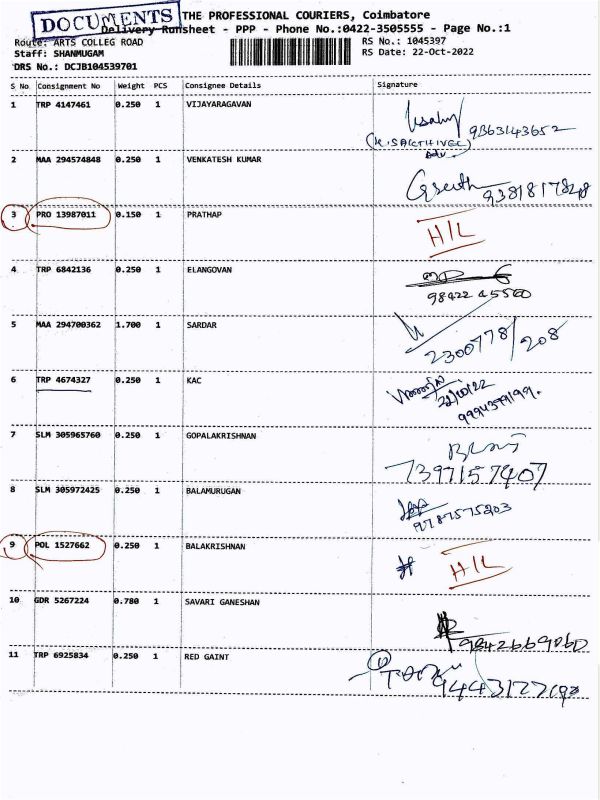 DOCUMENTS
THE PROFESSIONAL COURIERS, Coimbatore
Delivery Runsheet - PPP - Phone No.:0422-3505555 - Page No.:1
Route: ARTS COLLEG ROAD RS No.: 1045397
Staff: SHANMUGAM RS Date: 22-Oct-2022
DRS No.: DCJB104539701
S No Consignment No Weight PCS Consignee Details Signature
1 TRP 4147461 0.250 1 VIJAYARAGAVAN
9363143652
(K.SAKTHIVEL)
2 MAA 294574848 0.250 1 VENKATESH KUMAR
3 PRO 13987011 0.150 1 PRATHAP H/L
4 TRP 6842136 0.250 1 ELANGOVAN
98422 45560
5 MAA 294700362 1.700 1 SARDAR
2300778/208
6 TRP 4674327 0.250 1 KAC
22/10/22
7 SLM 305965760 0.250 1 GOPALAKRISHNAN
7397157407
8 SLM 305972425 0.250 1 BALAMURUGAN
9787575203
9 POL 1527662 0.250 1 BALAKRISHNAN H/L
10 GDR 5267224 0.780 1 SAVARI GANESHAN
9842669060
11 TRP 6925834 0.250 1 RED GAINT